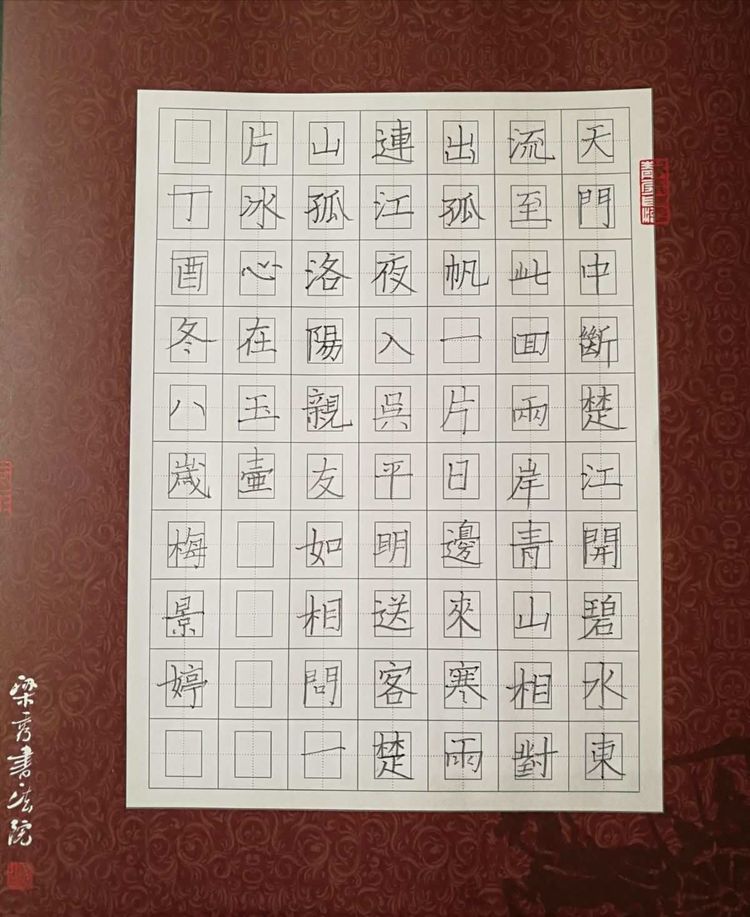 天門中斷楚江開碧水東
流至此回兩岸青山相對
出孤帆一片日邊來寒雨
連江夜入吳平明送客楚
山孤洛陽親友如相問一
片冰心在玉壺
丁酉冬八歲梅景婷